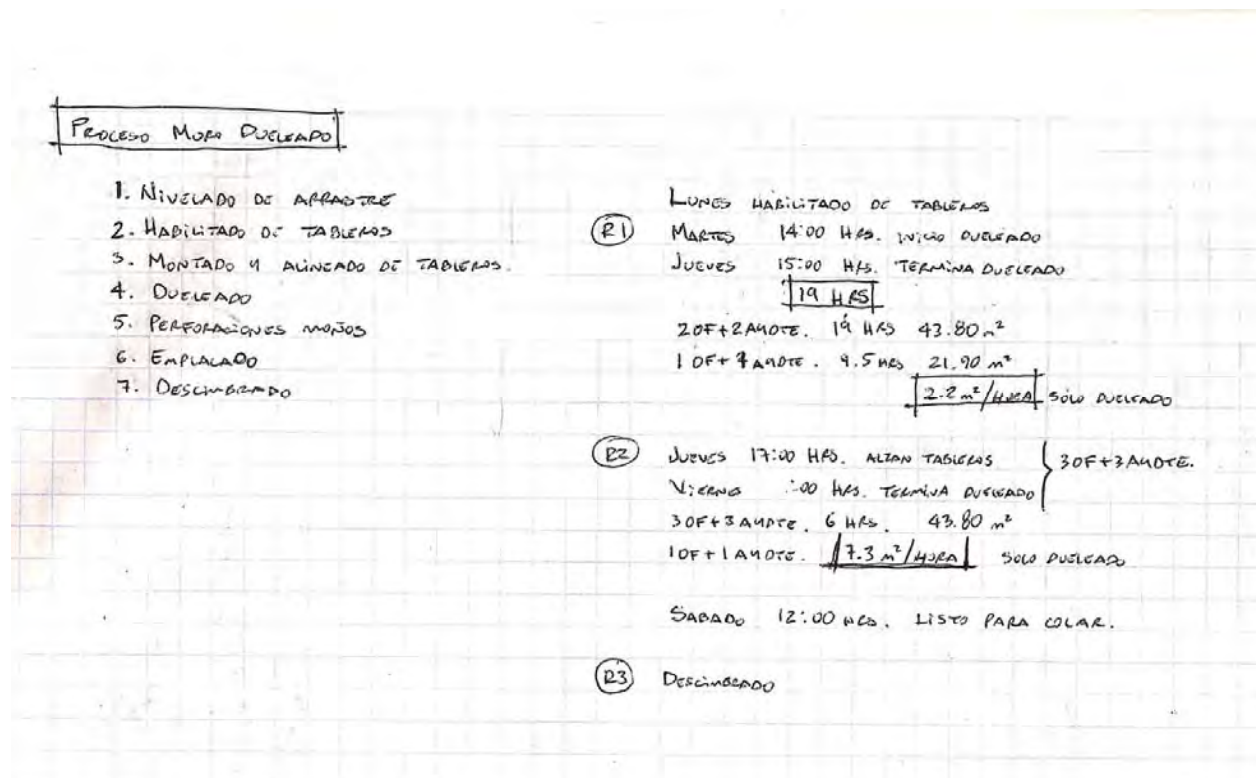 PROCESO MURO DUELEADO
1. NIVELADO DE ARRASTRE
2. HABILITADO DE TABLEROS
3. MONTADO Y ALINEADO DE TABLEROS.
4. DUELEADO
5. PERFORACIONES MOÑOS
6. EMPLACADO
7. DESCIMBRADO
LUNES HABILITADO DE TABLEROS
R1 MARTES 14:00 HRS. INICIO DUELEADO
JUEVES 15:00 HRS. TERMINA DUELEADO
19 HRS
2OF+2AYDTE. 19 HRS 43.80 m²
1OF+ AYDTE. 9.5 HRS 21.90 m²
2.2 m²/HORA SOLO DUELEADO
R2 JUEVES 17:00 HRS. ALZAN TABLEROS
3OF+3AYDTE.
VIERNES :00 HRS. TERMINA DUELEADO
3OF+3AYDTE. 6 HRS. 43.80 m²
1OF+1AYDTE. 7.3 m²/HORA SOLO DUELEADO
SABADO 12:00 HRS. LISTO PARA COLAR.
R3 DESCIMBRADO